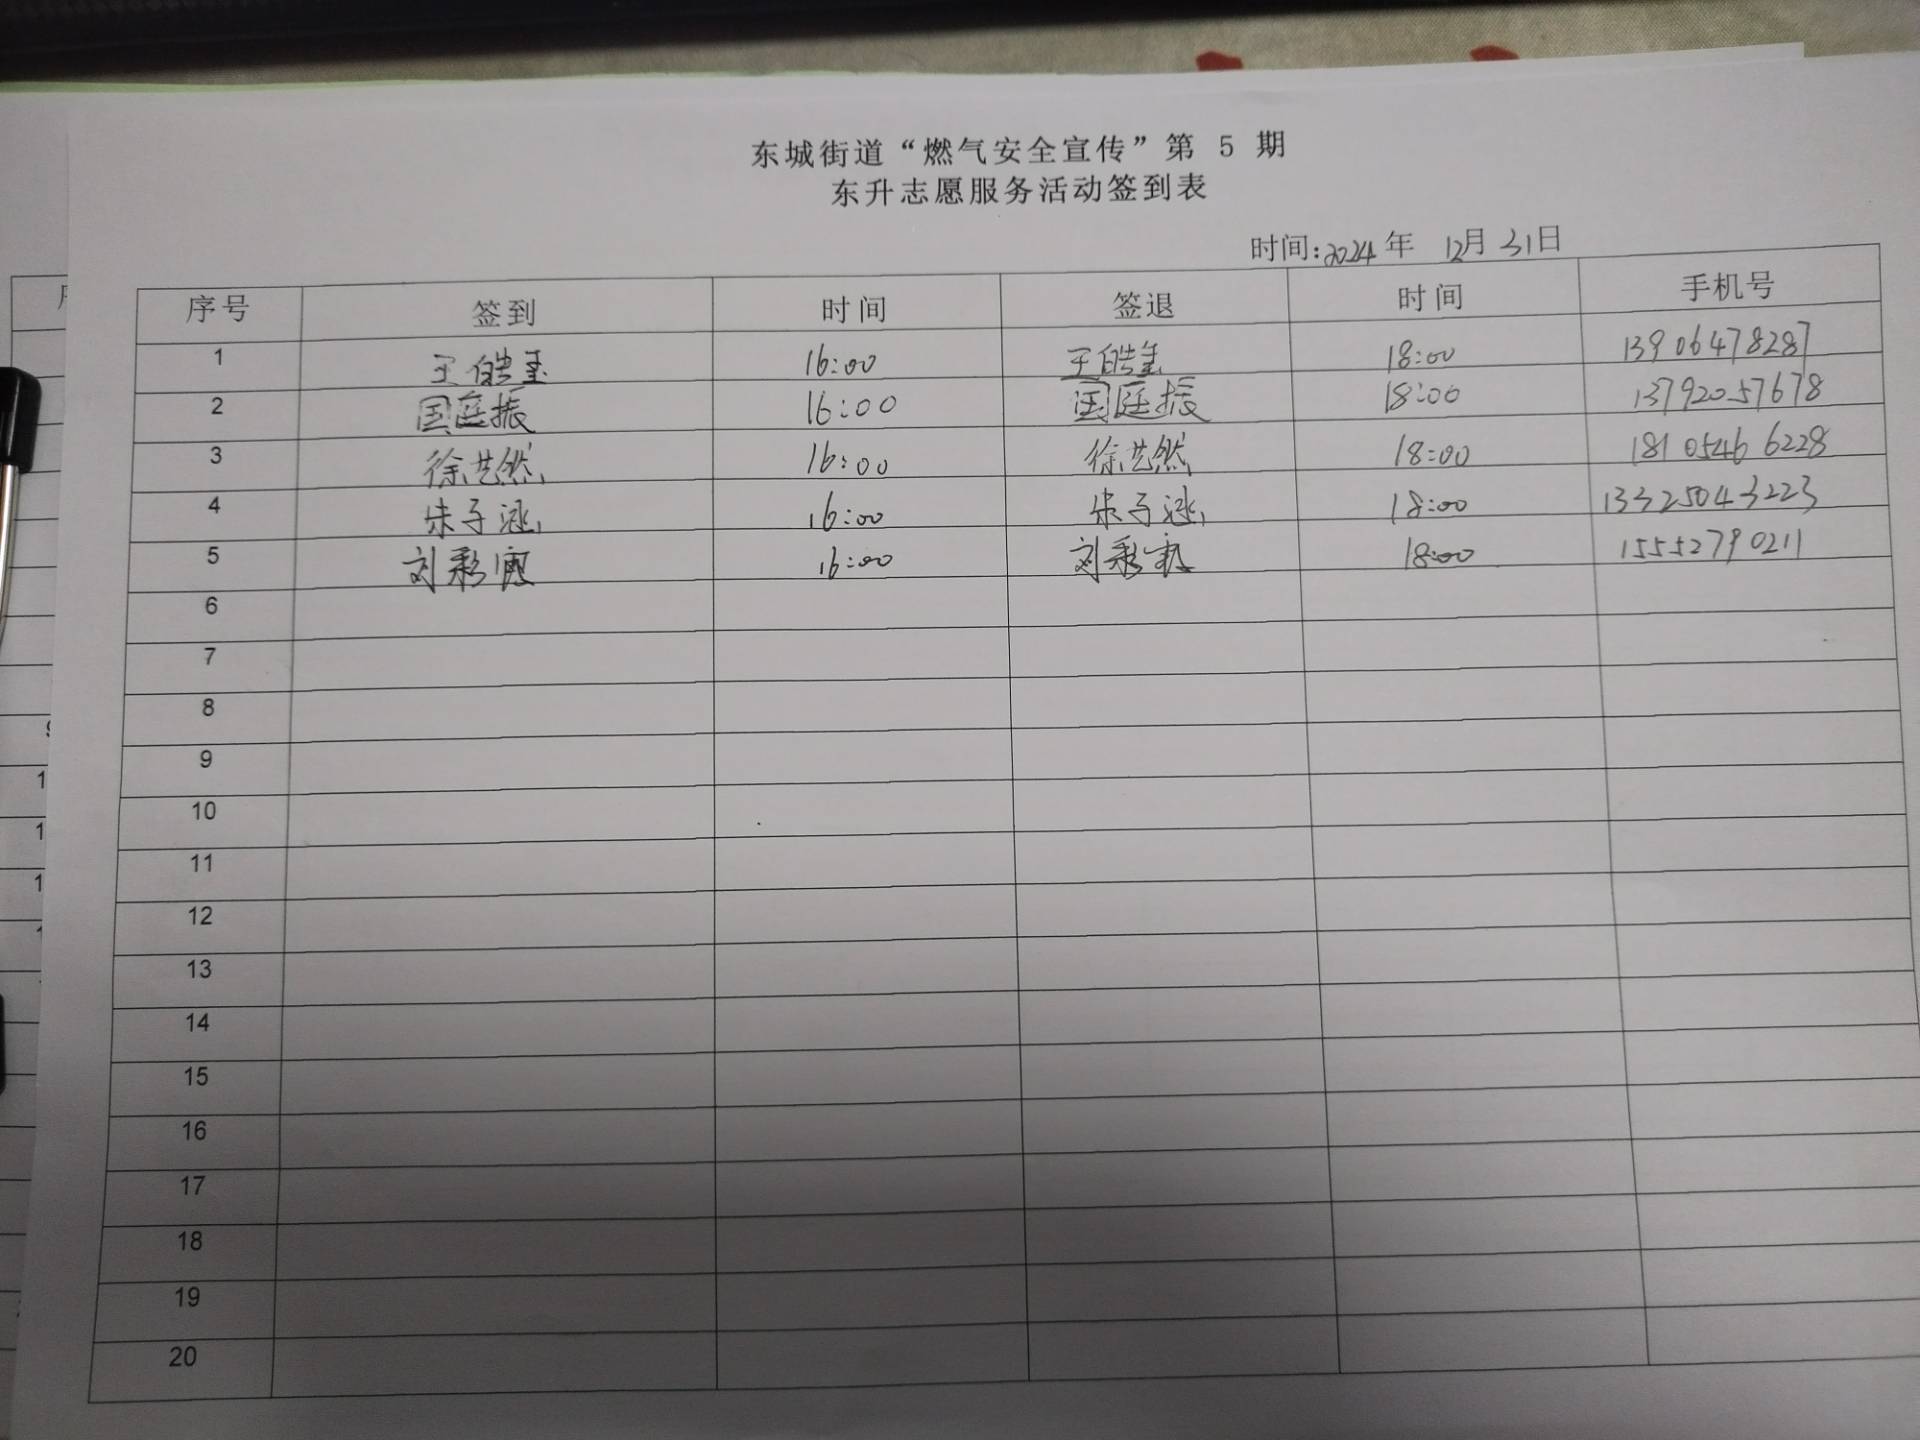 东城街道“燃气安全宣传”第 5 期
东升志愿服务活动签到表
时间:2024年 12月31日
序号 签到 时间 签退 时间 手机号
1 王皓玺 16:00 王皓玺 18:00 13906478287
2 国庭振 16:00 国庭振 18:00 13792057678
3 徐艺然 16:00 徐艺然 18:00 18105466228
4 朱子涵 16:00 朱子涵 18:00 13325043223
5 刘彩霞 16:00 刘彩霞 18:00 15552790211
6
7
8
9
10
11
12
13
14
15
16
17
18
19
20